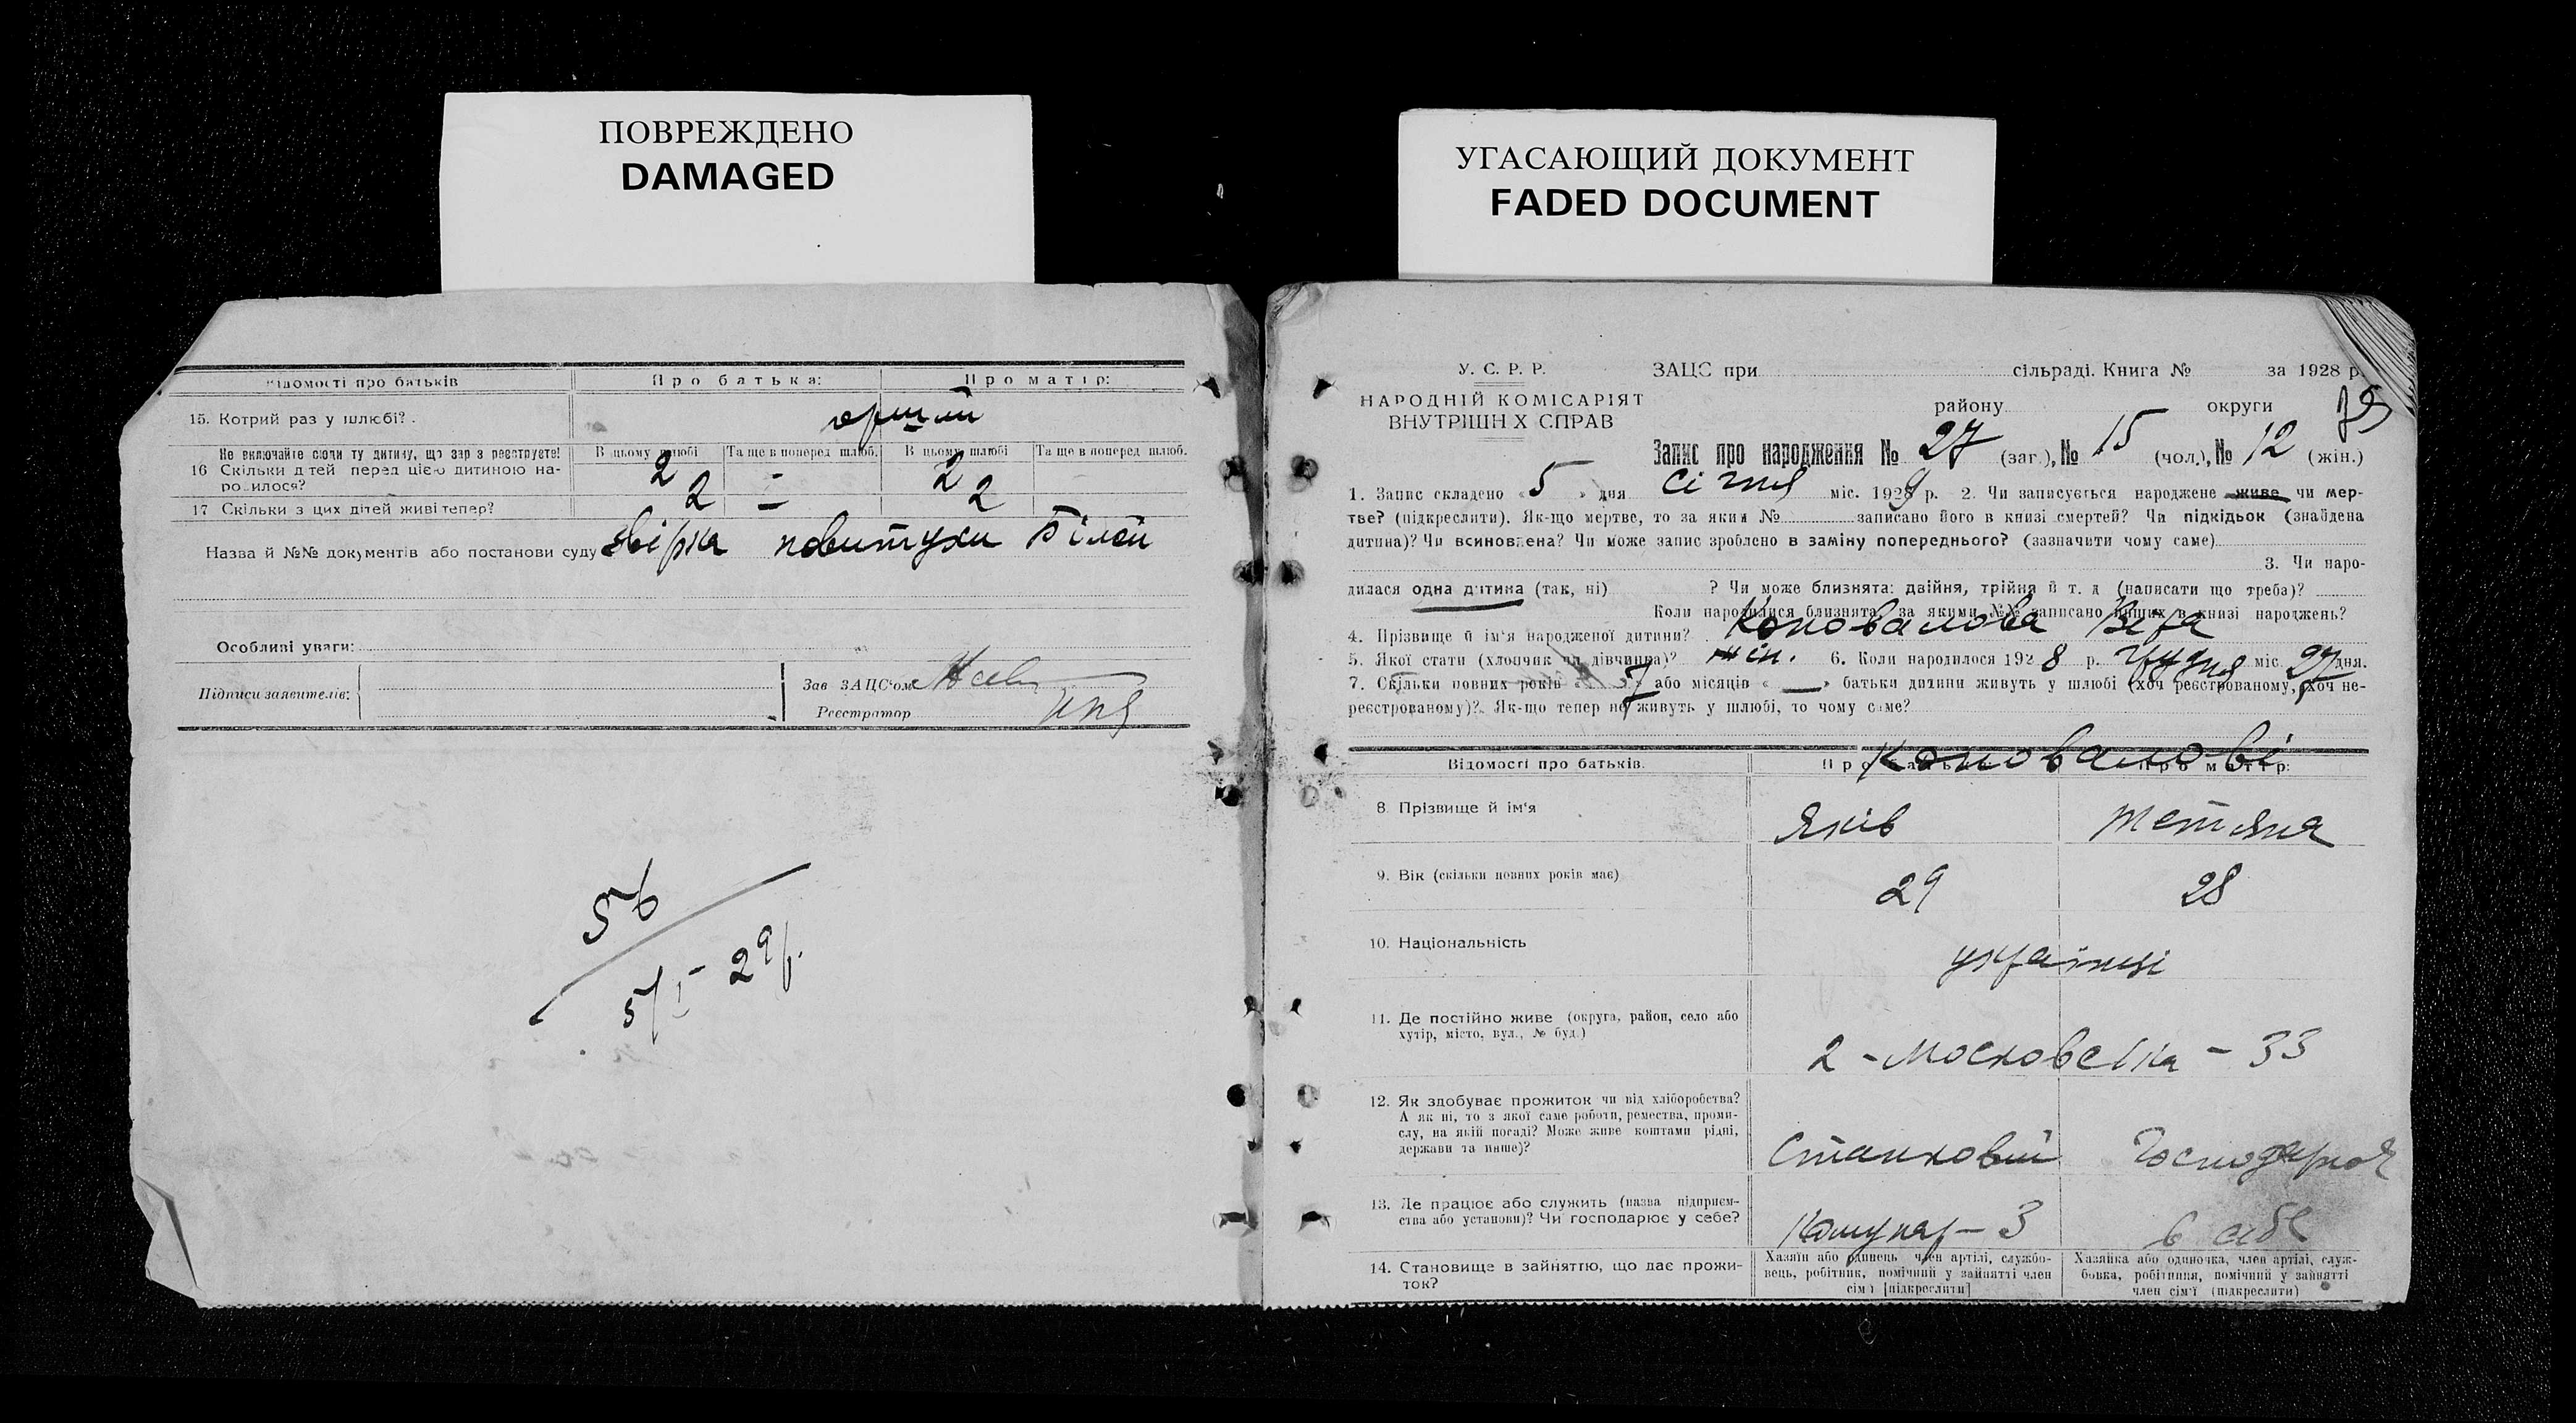 ПОВРЕЖДЕНО
DAMAGED
УГАСАЮЩИЙ ДОКУМЕНТ
FADED DOCUMENT
Відомості про батьків Про батька: Про матір:
15. Котрий раз у шлюбі?
Не включайте сюди ту дитину, що зараз реєструєте!
16 Скільки дітей перед цією дитиною народилося?
В цьому шлюбі Та ще в поперед шлюб. В цьому шлюбі Та ще в поперед шлюб.
2 2
17 Скільки з цих дітей живі тепер? 2 — 2
Назва й №№ документів або постанови суду повитухи Білой
Особливі уваги:
Підписи заявителів:
Зав ЗАЦС'ом
Реєстратор
56
5/I - 29 р.
У. С. Р. Р.
НАРОДНІЙ КОМІСАРІЯТ
ВНУТРІШНІХ СПРАВ
ЗАЦС при сільраді. Книга № за 1928 р.
району округи
Запис про народження № 27 (заг.), № 15 (чол.), № 12 (жін.)
1. Запис складено « 5 » дня січня міс. 1929 р. 2. Чи записується народжене живе чи мер-
тве? (підкреслити). Як-що мертве, то за яким № записано його в книзі смертей? Чи підкідьок (знайдена
дитина)? Чи всиновлена? Чи може запис зроблено в заміну попереднього? (зазначити чому саме)
3. Чи наро-
дилася одна дитина (так, ні) ? Чи може близнята: двійня, трійня й т. д (написати що треба)?
Коли народилися близнята, за якими №№ записано інших в книзі народжень?
4. Прізвище й ім'я народженої дитини? Коновалова Віра
5. Якої стати (хлопчик чи дівчинка)? жін. 6. Коли народилося 1928 р. грудня міс. 27 дня.
7. Скільки повних років « 7 » або місяців « — » батьки дитини живуть у шлюбі (хоч реєстрованому, хоч не-
реєстрованому)? Як-що тепер не живуть у шлюбі, то чому саме?
Відомості про батьків. Про батька: Про матір:
Коновалові
8. Прізвище й ім'я Яків Тетяна
9. Вік (скільки повних років має) 29 28
10. Національність українці
11. Де постійно живе (округа, район, село або
хутір, місто, вул., № буд.)
2 - Московська - 33
12. Як здобуває прожиток чи від хліборобства?
А як ні, то з якої саме роботи, ремества, проми-
слу, на якій посаді? Може живе коштами рідні,
держави та инше)?
Станковий Господарноя
13. Де працює або служить (назва підприєм-
ства або установи)? Чи господарює у себе?
Комунар - 3 в себе
14. Становище в зайняттю, що дає прожи-
ток?
Хазяїн або одинець член артілі, службо-
вець, робітник, помічний у зайнятті член
сім'ї [підкреслити]
Хазяйка або одиночка, член артілі, служ-
бовка, робітниця, помічний у зайнятті
член сім'ї (підкреслити)